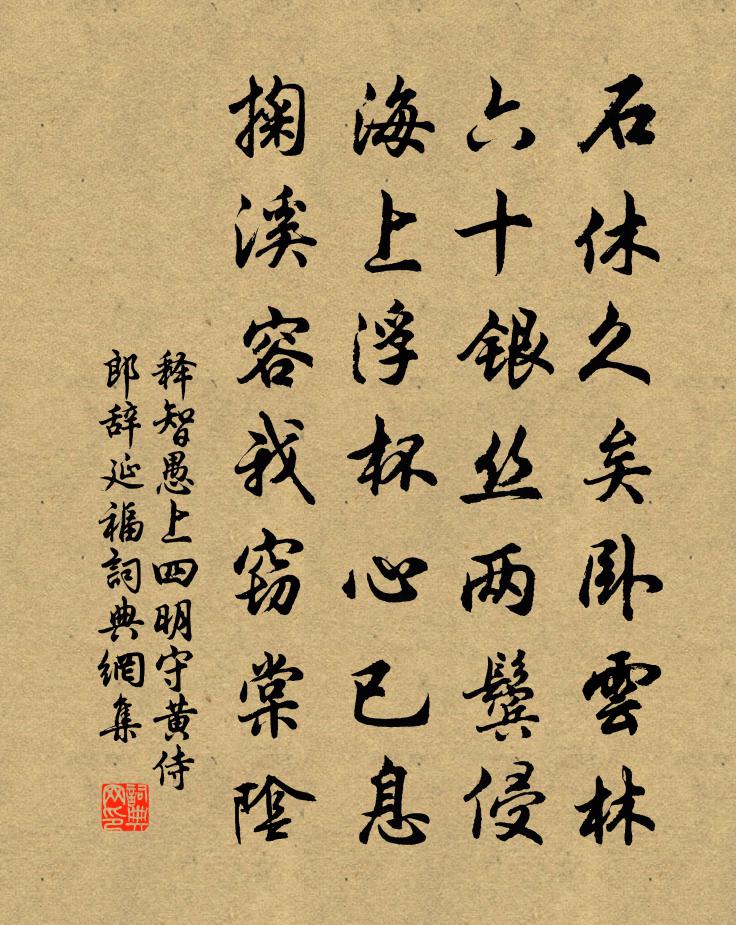 石休久矣卧雲林
六十银丝两鬓侵
海上浮杯心已息
掬溪容我窃棠陰
释智愚上四明守黄侍
郎辞延福詞典網集
詞典网印